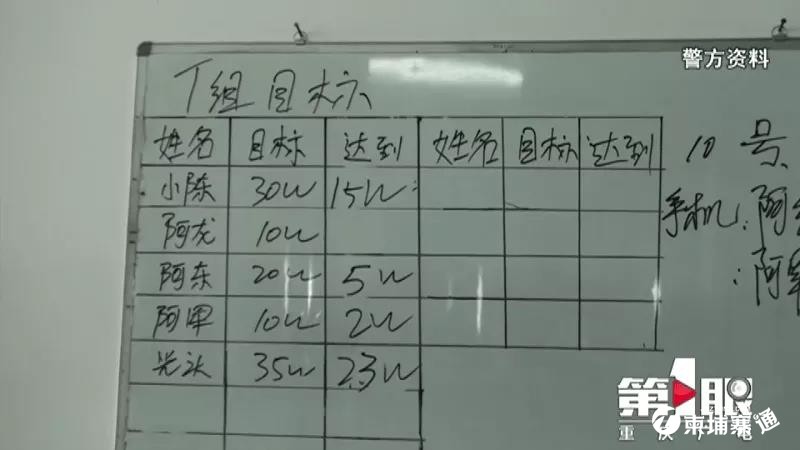 警方资料
T组目标
姓名 目标 达到 姓名 目标 达到
小陈 30W 15W
阿龙 10W
阿东 20W 5W
阿军 10W 2W
光头 35W 23W
10号
手机:阿
:阿军
第1眼
重庆
柬埔寨通